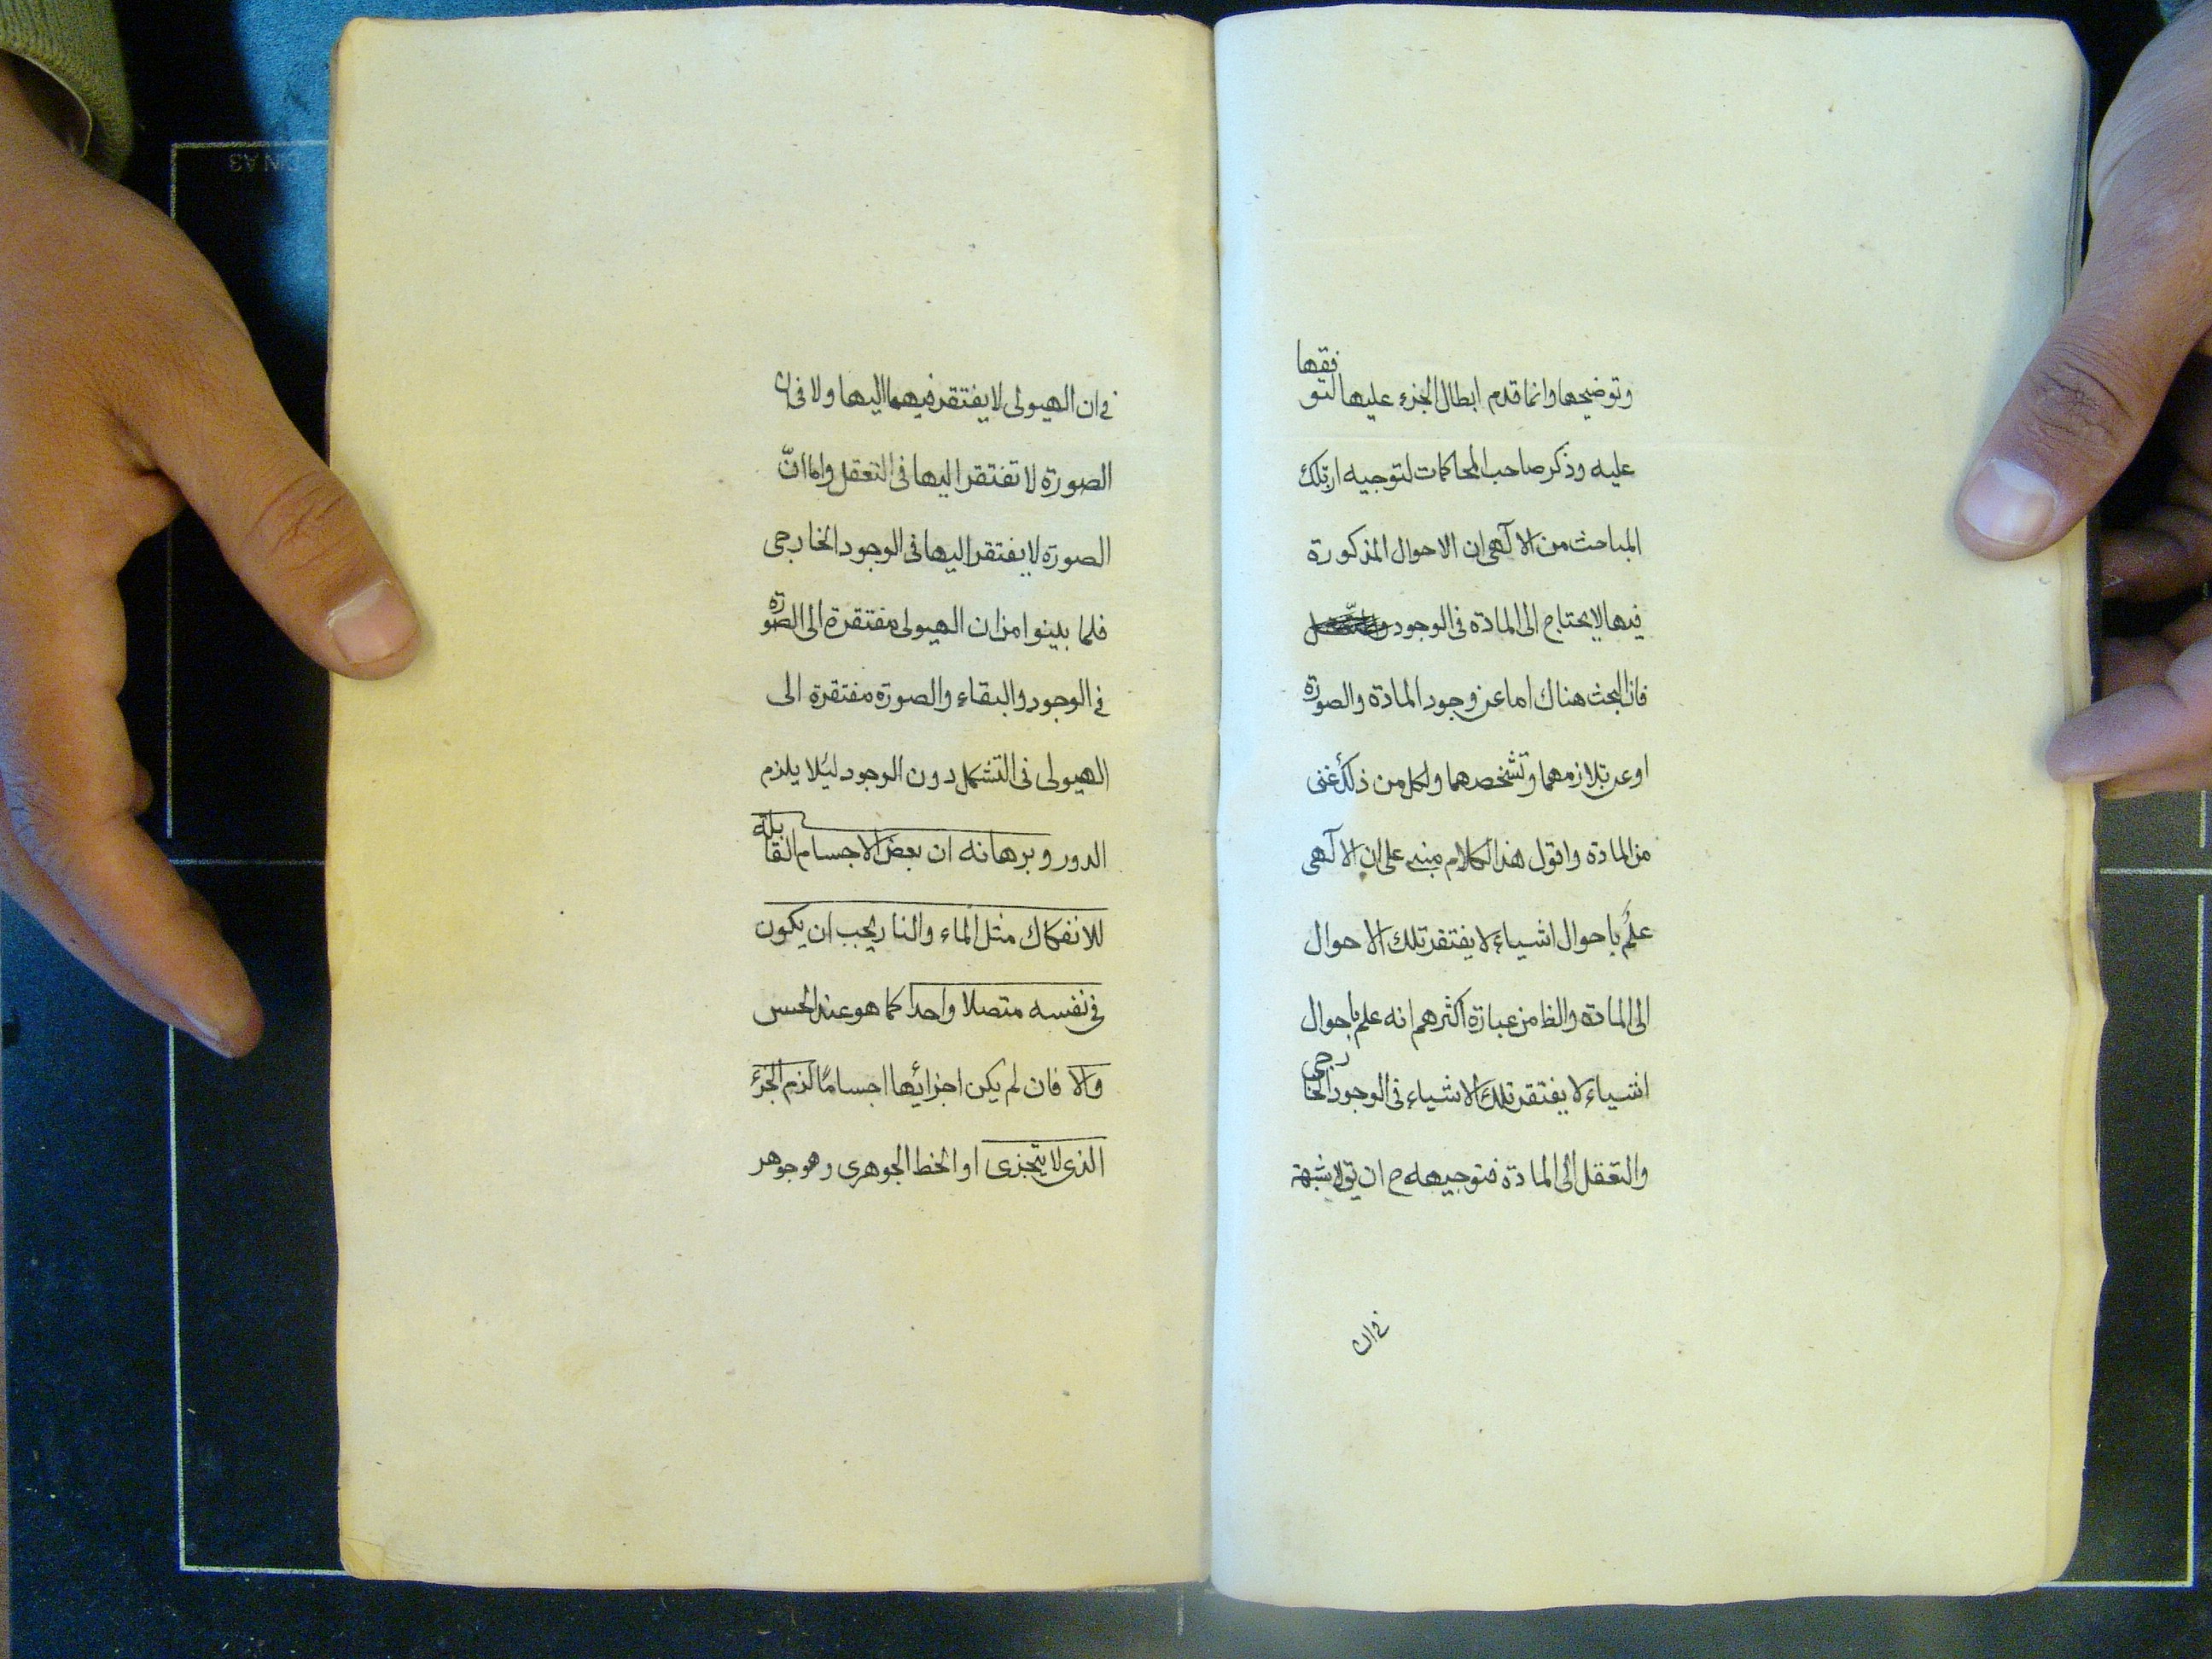 وتوضيحها وانما قدم ابطال الجزء عليها لتوقفها
عليه وذكر صاحب المحاكمات لتوجيه ان تلك
المباحث من الالهى ان الاحوال المذكورة
فيها لا يحتاج الى المادة فى الوجود والتعقل
فان البحث هناك اما عن وجود المادة والصورة
او عن تلازمهما وتشخصهما ولكل من ذلك غنى
من المادة واقول هذا الكلام مبنى على ان الالهى
علم باحوال اشياء لا يفتقر تلك الاحوال
الى المادة والظ من عبارة اكثرهم انه علم باحوال
اشياء لا يفتقر تلك الاشياء فى الوجود الخارجى
والتعقل الى المادة فتوجيهه ح ان يق لا شبهة
فى ان
فى ان الهيولى لا يفتقر فيهما اليها ولا فى ان
الصورة لا تفتقر اليها فى التعقل واما انّ
الصورة لا يفتقر اليها فى الوجود الخارجى
فلما بينوا من ان الهيولى مفتقرة الى الصورة
فى الوجود والبقاء والصورة مفتقرة الى
الهيولى فى التشكل دون الوجود ليلا يلزم
الدور وبرهانه ان بعض الاجسام القابلة
للانفكاك مثل الماء والنار يجب ان يكون
فى نفسه متصلا واحدا كما هو عند الحس
والا فان لم يكن اجزائها اجسامًا لزم الجزء
الذى لا يتجزى او الخط الجوهرى وهو جوهر